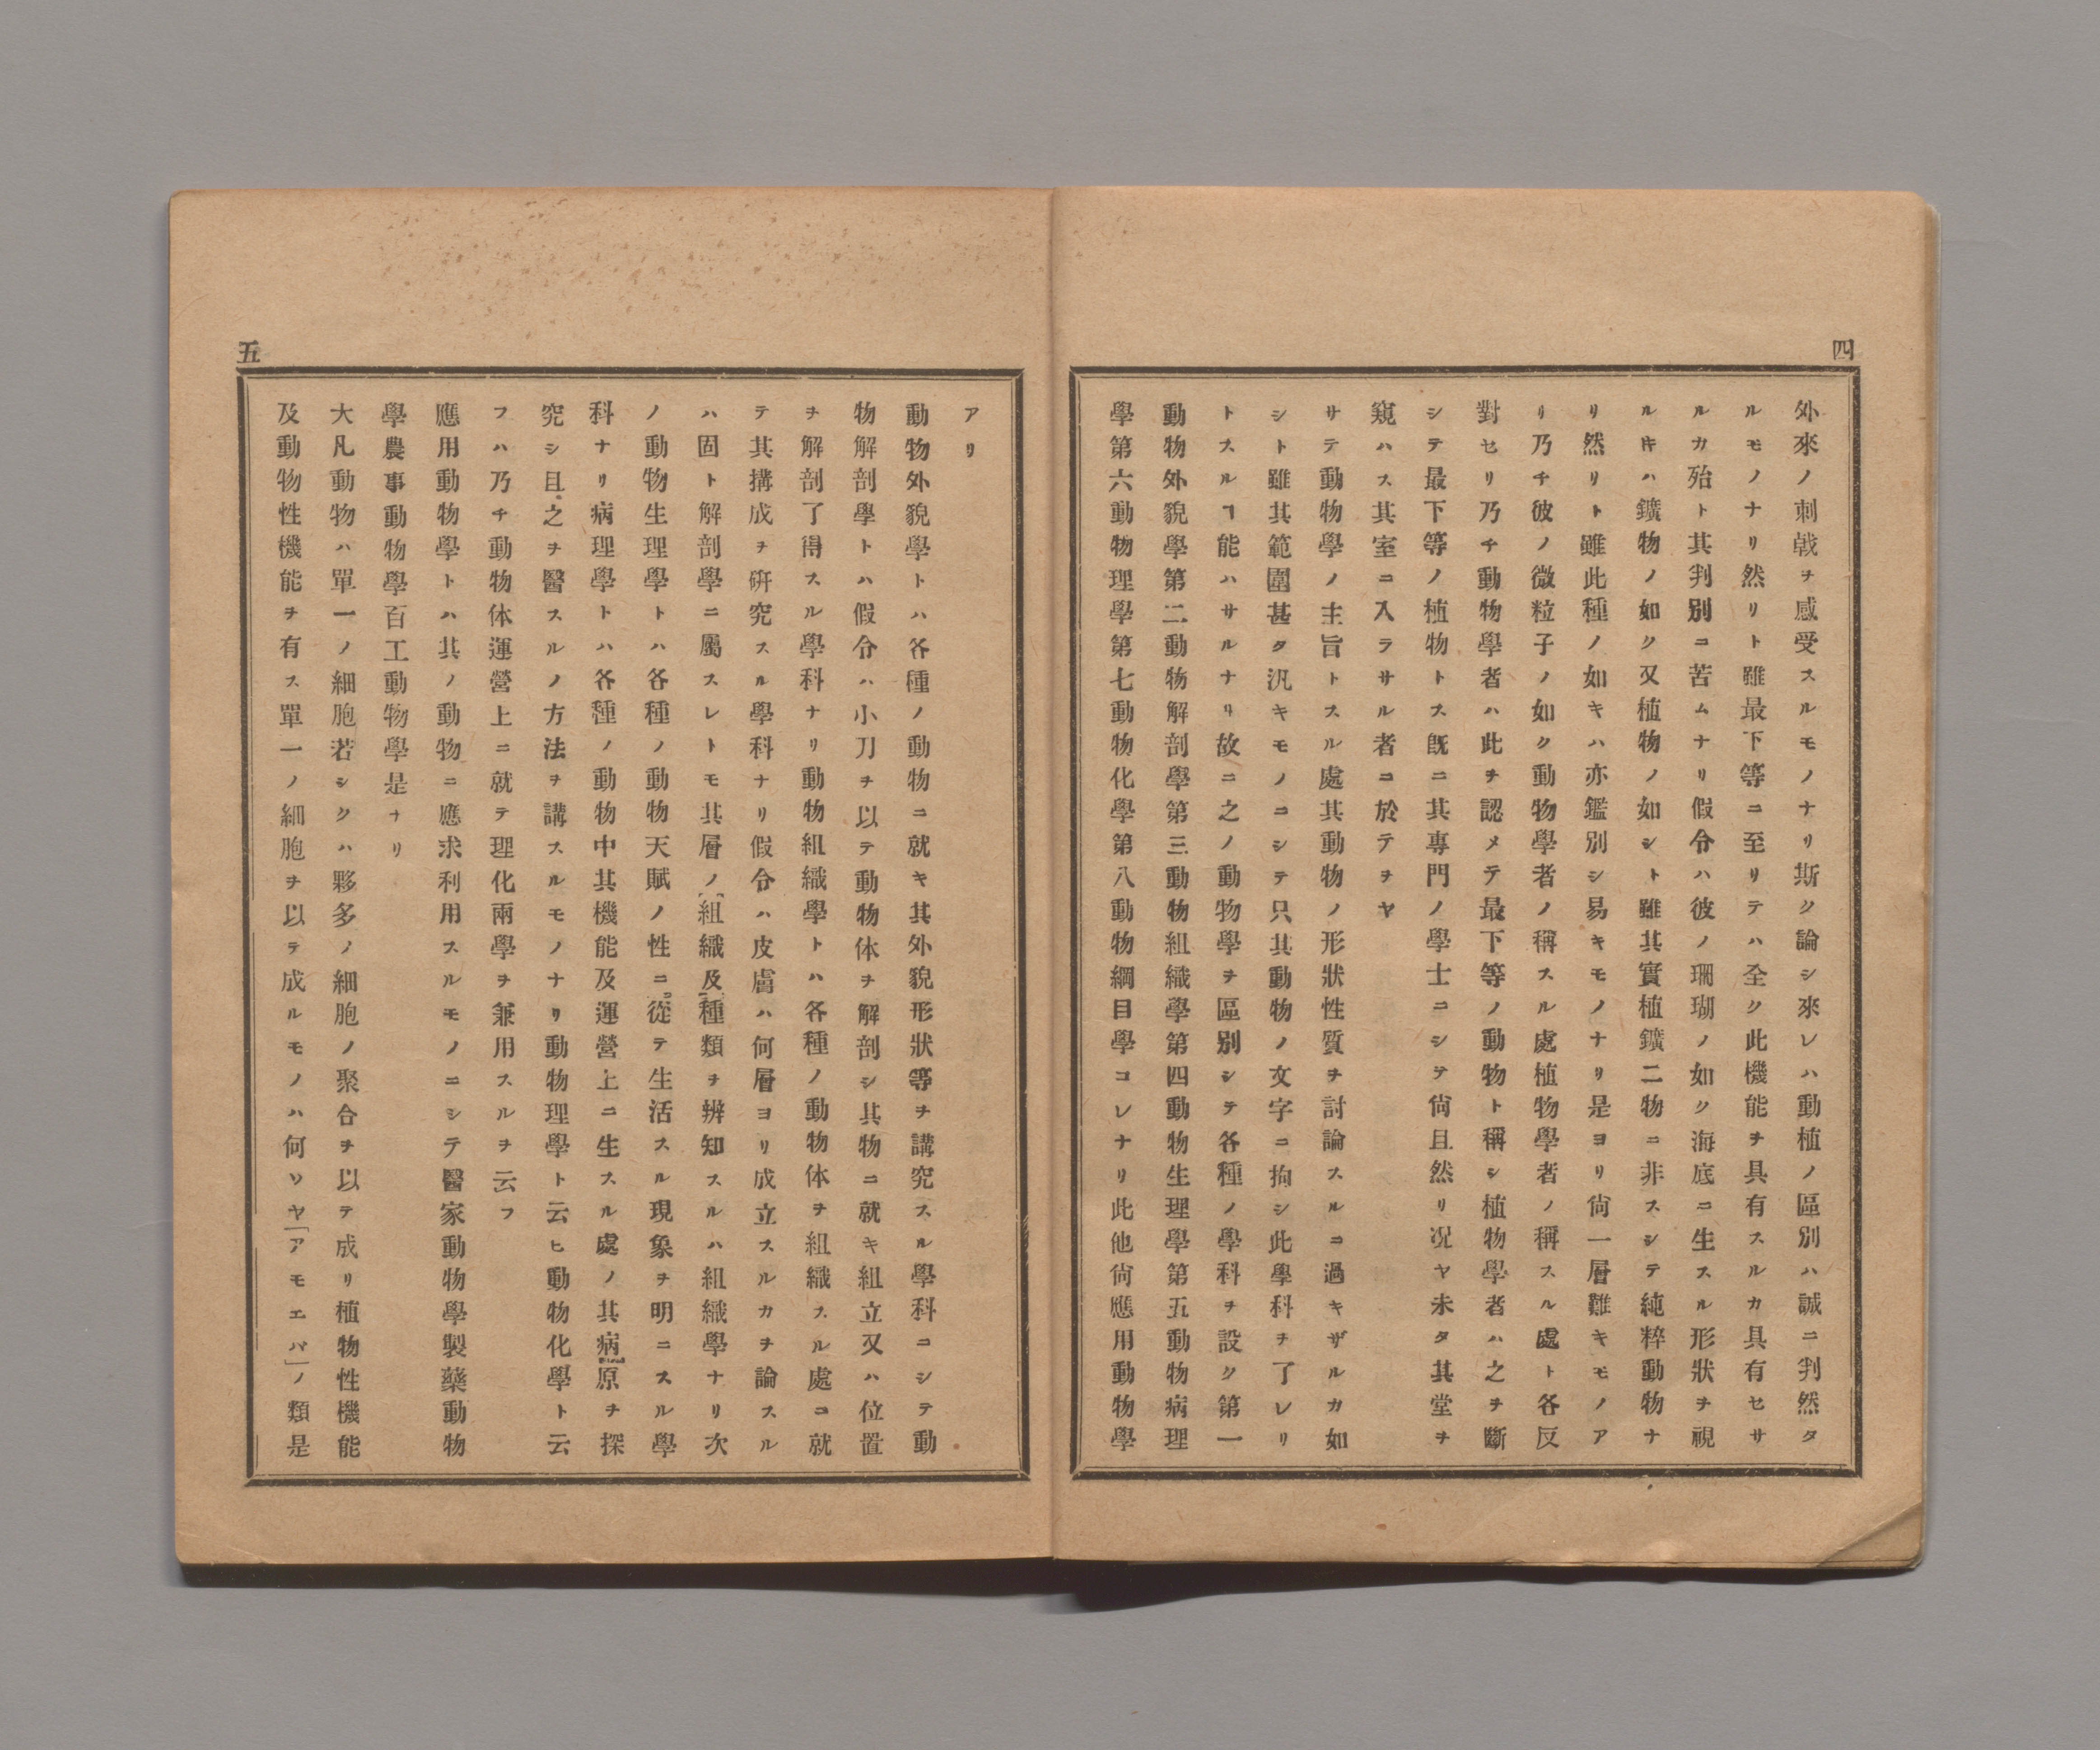 四
外來ノ刺戟ヲ感受スルモノナリ斯ク論シ來レハ動植ノ區別ハ誠ニ判然タ
ルモノナリ然リト雖最下等ニ至リテハ全ク此機能ヲ具有スルカ具有セサ
ルカ殆ト其判別ニ苦ムナリ假令ハ彼ノ珊瑚ノ如ク海底ニ生スル形狀ヲ視
ルキハ鑛物ノ如ク又植物ノ如シト雖其實植鑛二物ニ非スシテ純粹動物ナ
リ然リト雖此種ノ如キハ亦鑑別シ易キモノナリ是ヨリ尙一層難キモノア
リ乃チ彼ノ微粒子ノ如ク動物學者ノ稱スル處植物學者ノ稱スル處ト各反
對セリ乃チ動物學者ハ此ヲ認メテ最下等ノ動物ト稱シ植物學者ハ之ヲ斷
シテ最下等ノ植物トス既ニ其專門ノ學士ニシテ尙且然リ况ヤ未タ其堂ヲ
窺ハス其室ニ入ラサル者ニ於テヲヤ
サテ動物學ノ主旨トスル處其動物ノ形狀性質ヲ討論スルニ過キザルカ如
シト雖其範圍甚タ汎キモノニシテ只其動物ノ文字ニ拘シ此學科ヲ了レリ
トスルヿ能ハサルナリ故ニ之ノ動物學ヲ區別シテ各種ノ學科ヲ設ク第一
動物外貌學第二動物解剖學第三動物組織學第四動物生理學第五動物病理
學第六動物理學第七動物化學第八動物綱目學コレナリ此他尙應用動物學
五
アリ
動物外貌學トハ各種ノ動物ニ就キ其外貌形狀等ヲ講究スル學科ニシテ動
物解剖學トハ假令ハ小刀ヲ以テ動物体ヲ解剖シ其物ニ就キ組立又ハ位置
ヲ解剖了得スル學科ナリ動物組織學トハ各種ノ動物体ヲ組織スル處ニ就
テ其搆成ヲ硏究スル學科ナリ假令ハ皮膚ハ何層ヨリ成立スルカヲ論スル
ハ固ト解剖學ニ屬スレトモ其層ノ組織及種類ヲ辨知スルハ組織學ナリ次
ノ動物生理學トハ各種ノ動物天賦ノ性ニ從テ生活スル現象ヲ明ニスル學
科ナリ病理學トハ各種ノ動物中其機能及運營上ニ生スル處ノ其病原ヲ探
究シ且之ヲ醫スルノ方法ヲ講スルモノナリ動物理學ト云ヒ動物化學ト云
フハ乃チ動物体運營上ニ就テ理化兩學ヲ兼用スルヲ云フ
應用動物學トハ其ノ動物ニ應求利用スルモノニシテ醫家動物學製藥動物
學農事動物學百工動物學是ナリ
大凡動物ハ單一ノ細胞若シクハ夥多ノ細胞ノ聚合ヲ以テ成リ植物性機能
及動物性機能ヲ有ス單一ノ細胞ヲ以テ成ルモノハ何ソヤ「アモエバ」ノ類是